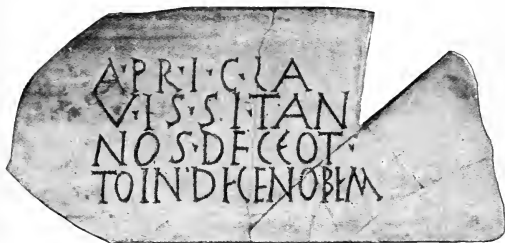 A·PR·I·C·LA
V·IS·S·I·TAN
NOS·DECEOT·
TOIN·DECENOBEM